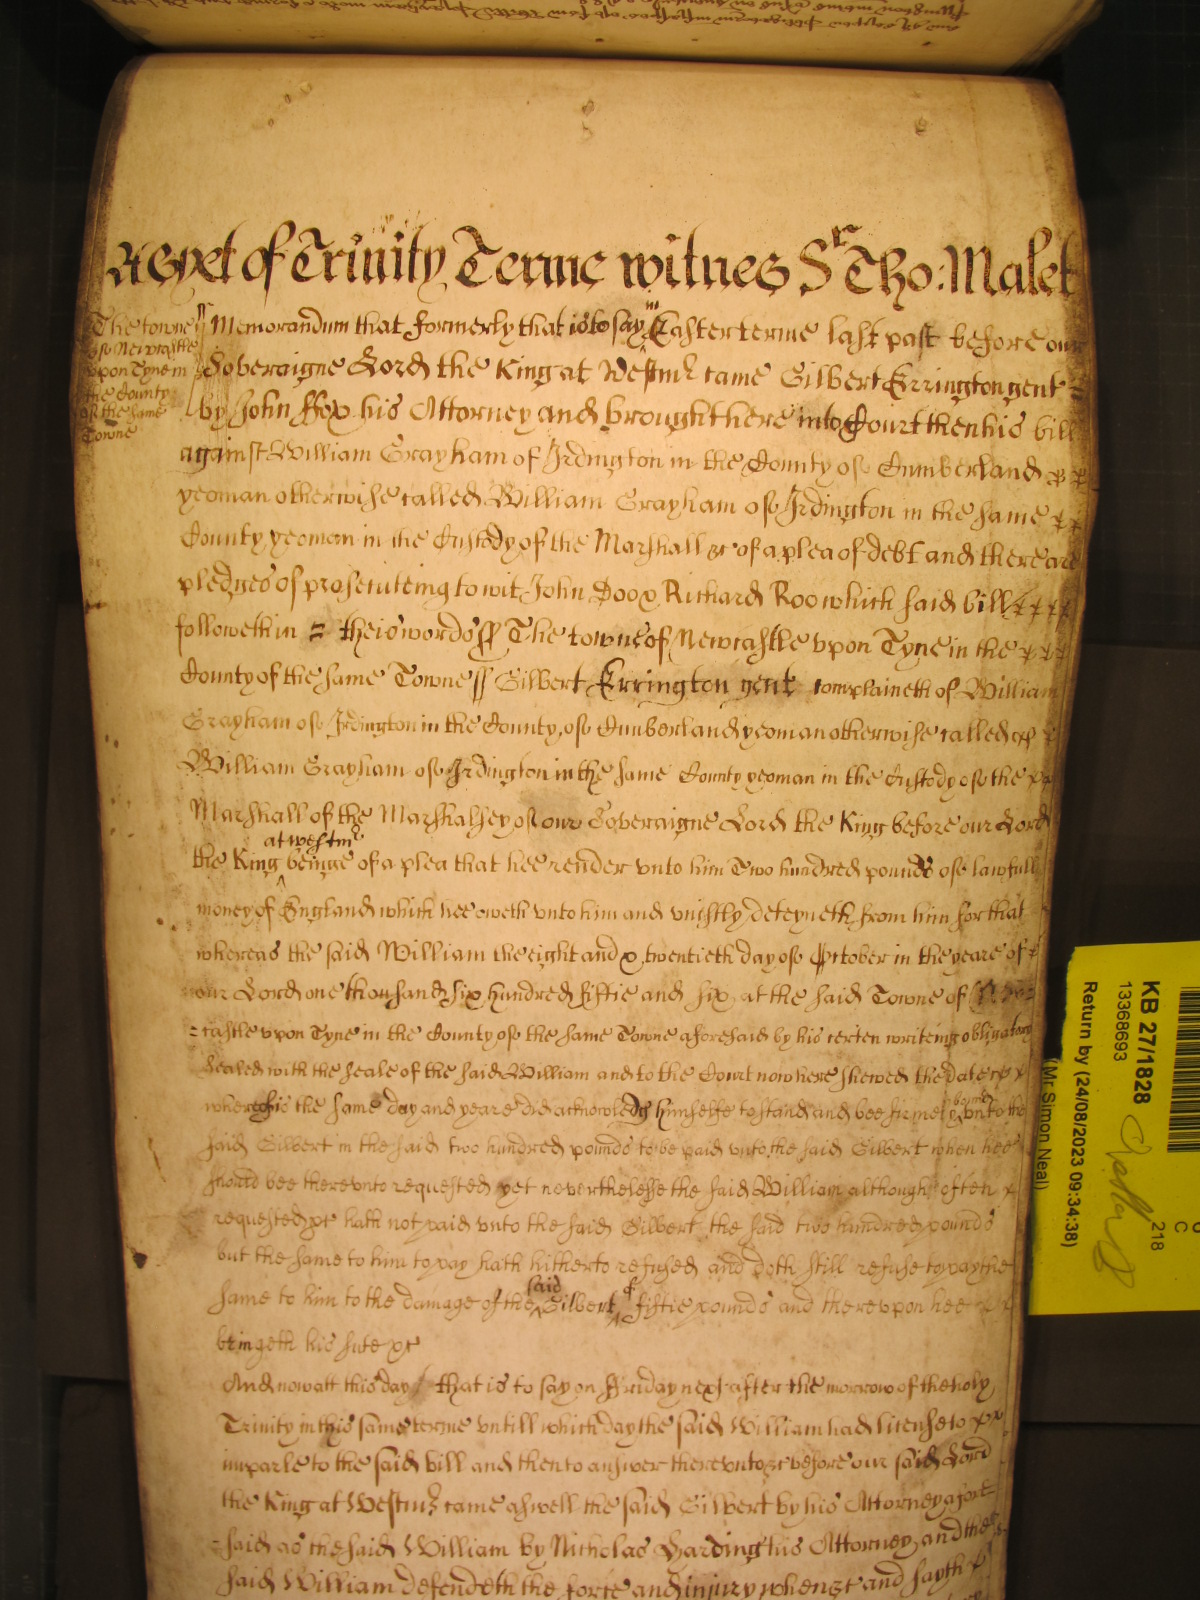 As yet of Trinity Terme witnes Sr Tho: Malet
The towne
of Newcastle
upon Tyne in
the County
of the same
Towne
Memorandum that formerly that is to say in Easter terme last past before our
Soveraigne Lord the King at Westmr came Gilbert Errington gent
by John ffox his Attorney and brought here into Court then his bill
against William Grayham of Irdington in the County of Cumberland
yeoman otherwise called William Grayham of Irdington in the same
County yeoman in the Custody of the Marshall &c of a plea of debt and there are
pledges of prosecuteing to wit John Doo & Richard Roo which said bill
followeth in = theis words ss The towne of Newcastle upon Tyne in the
County of the same Towne ss Gilbert Errington gent complaineth of William
Grayham of Irdington in the County of Cumberland yeoman otherwise called
William Grayham of Irdington in the same County yeoman in the Custody of the
Marshall of the Marshalsey of our Soveraigne Lord the King before our Lord
the King at westmr beinge of a plea that hee render unto him Two hundred pounds of lawfull
money of England which hee oweth unto him and uniustly deteyneth from him for that
whereas the said William the eight and twentieth day of October in the yeare of
our Lord one thousand six hundred fiftie and six at the said Towne of New=
=castle upon Tyne in the County of the same Towne aforesaid by his certen writeing obligatory
Sealed with the seale of the said William and to the Court now here shewed the date
whereof is the same day and yeare did acknowledg himselfe to stand and bee firmely bound unto the
said Gilbert in the said two hundred pounds to be paid unto the said Gilbert when hee
should bee thereunto requested yet neverthelesse the said William although often
requested &c hath not paid unto the said Gilbert the said two hundred pounds
but the same to him to pay hath hitherto refused and doth still refuse to pay the
same to him to the damage of the said Gilbert of fiftie pounds and thereupon hee
bringeth his sute &c
And now att this day that is to say on ffriday next after the morrow of the holy
Trinity in this same terme untill which day the said William had license to
imparle to the said bill and then to answer thereunto &c before our said Lord
the King at Westmr came aswell the said Gilbert by his Attorney afore=
=said as the said William by Nicholas Harding his Attorney and the
said William defendeth the force and injury when &c and sayth
KB 27/1828
13368693
Return by (24/08/2023 09:34:38)
(Mr Simon Neal)
218
C